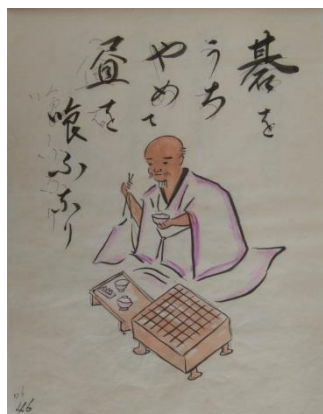 碁を
うち
やめて
昼を
喰ふなり
46